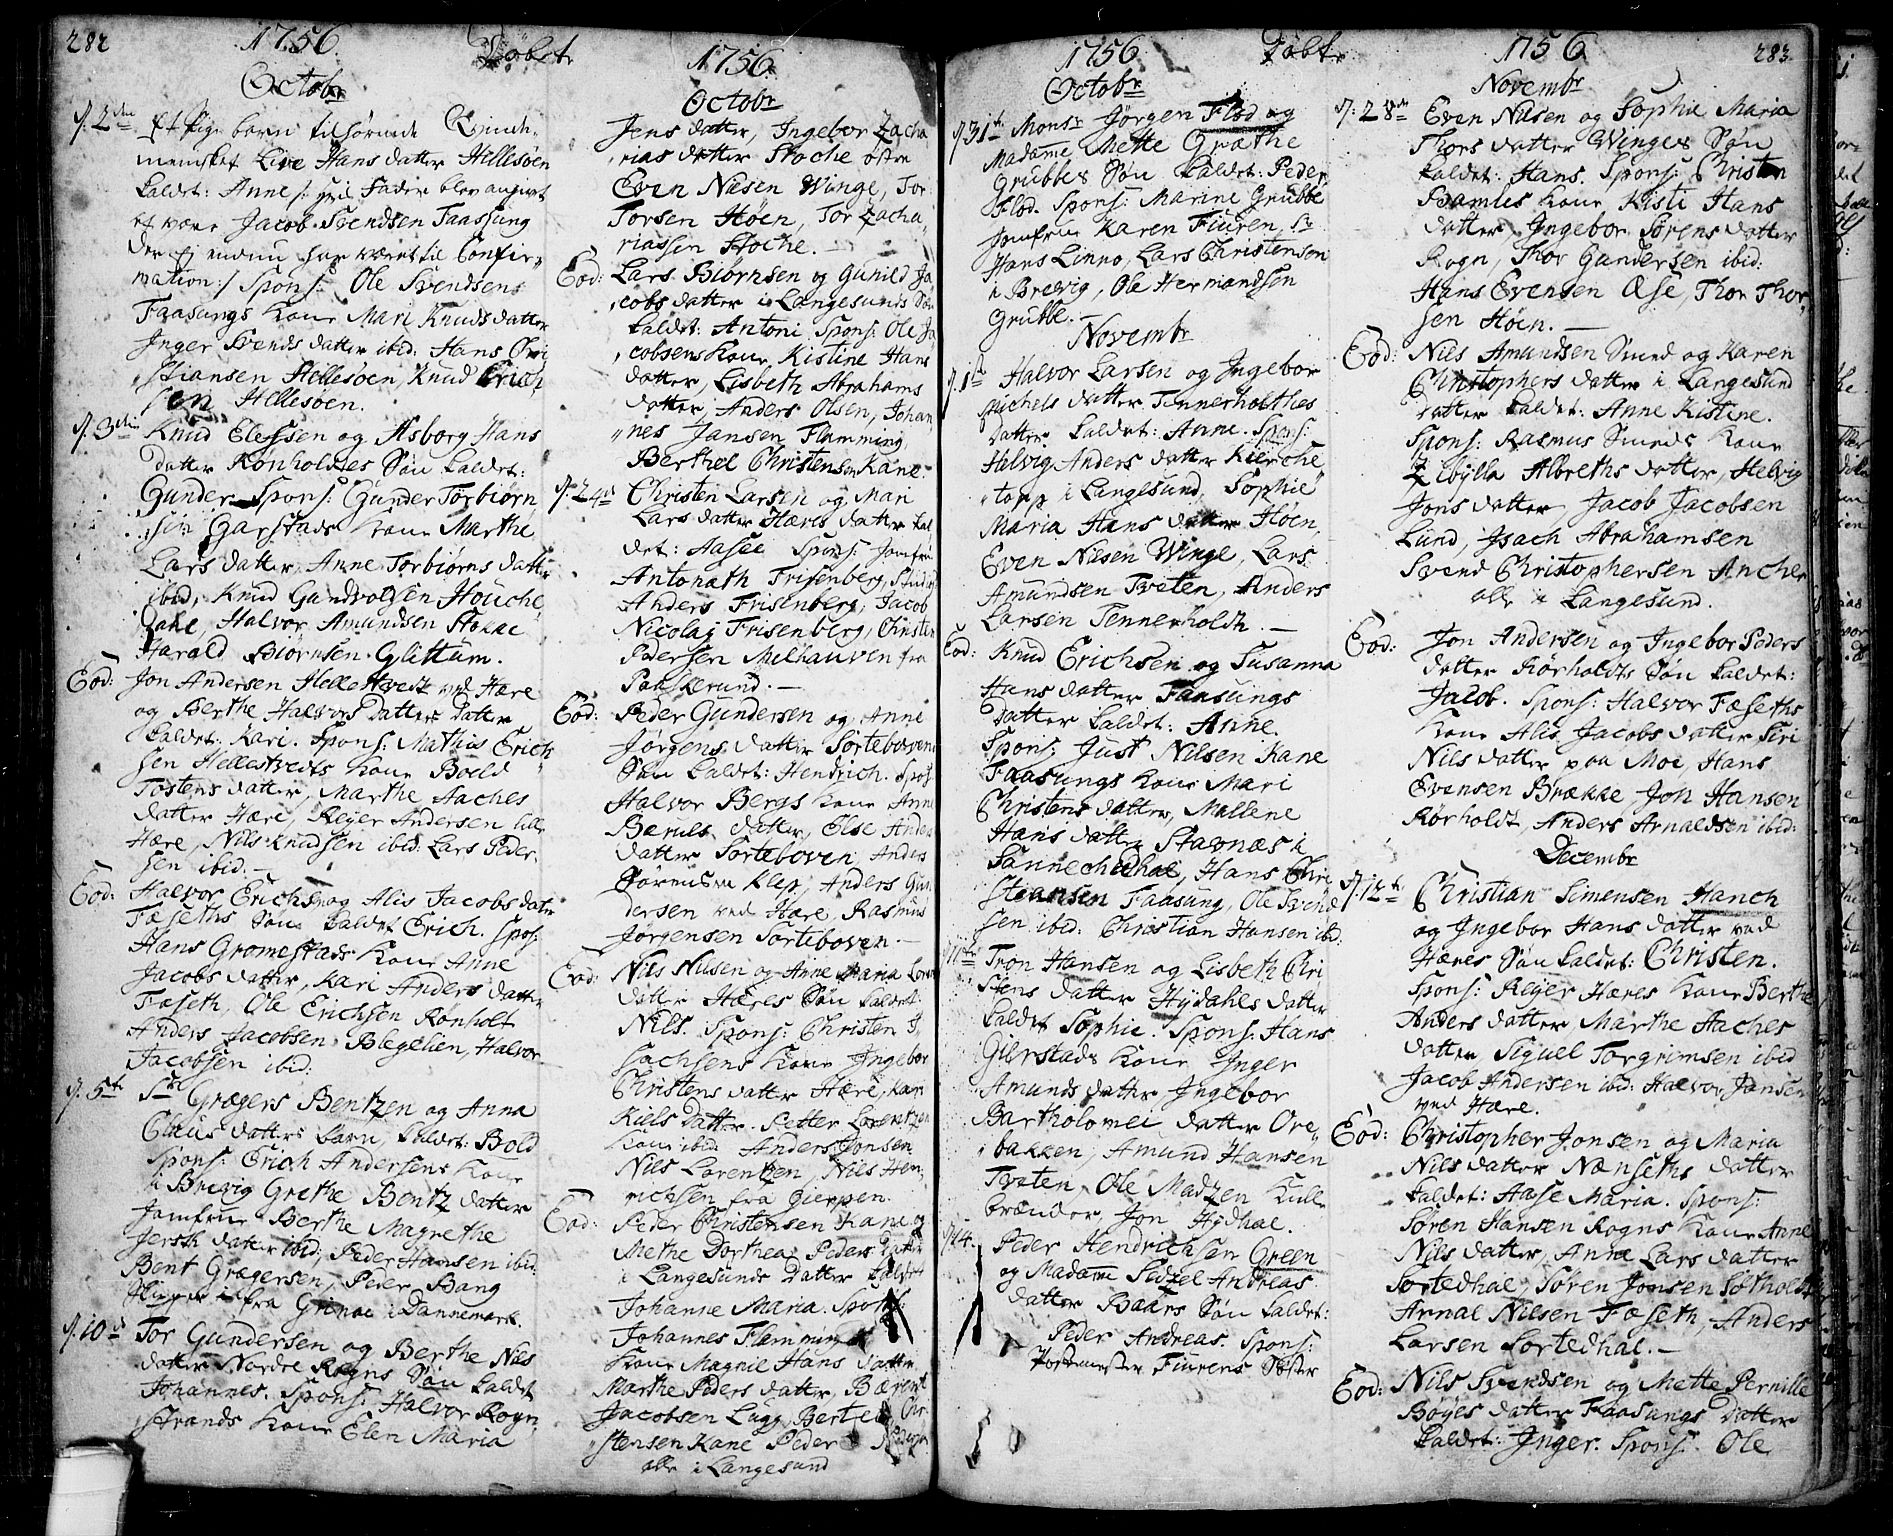 282
1756.
Døbte
Octobr
d. 2den Et Pige barn tilhørende Qvinde-
mennesket Live Hans datter Hellesøen
kaldet: Anne
et være Jacob Svendsen Faassung
der Ej endnu har været til Confir-
mation:/ Spons: Ole Svendsens
Faasungs Kone Mari Knudsdatter
Inger Svends datter ibid: Hans Chri
stiansen Hellesøen, Knud Erich
sen Hellesøen.
d. 3die Knud Elefsen og Asborg Hans
datter Rønholdtes Søn kaldet:
Gunder. Spons: Gunder Torbiørn
sen Garstads Kone Marthe
Lars datter, Anne Torbiørns datter
ibid, Knud Gundvolsen Houche
Halvor Amundsen Stokke
Harald Biørnsen Glittum.
Eod: Jon Andersen Hellestvedt ved Hære
og Berthe Halvors Datters Datter
kaldet: Kari. Spons: Mathis Erich
sen Hellestvedts Kone Boeld
Tostens datter, Marthe Aaches
datter Hære, Reyer Andersen
Hære, Nils Knudsen ibid: Lars Peder
sen ibid.
Eod: Halvor Erichsen og Alis Jacobs datter
Fæseths Søn kaldet Erich. Spos:
Hans Gromestads Kone Anne
Jacobs datter, Kari Anders datter
Fæseth, Ole Erichsen Rønholt
Anders Jacobsen Blegelien, Halvor
Jacobsen ibid:
d. 5te Sr Grægers Bentzen og Anna
Claus datters barn, kaldet: Bold
Spons: Erich Andersens Kone
i Brevig Grethe Bentz datter
Jomfrue Berthe Magrethe
datter ibid; Peder Hansen ibid:
Bent Grægersen, Peder Bang
fra Grinae i Dannemark.
d. 10de Tor Gundersen og Berthe Nils
datter Nordre Rogns Søn kaldet
Johannes. Spons: Halvor Rogn
strands Kone Elen Maria
1756.
Octobr
Jens datter, Ingebor Zacha
rias datter Stoche
Even Nilsen Winge, Tor
Torsen Høen, Tor Zacha
riassen Stoche.
Eod: Lars Biørnsen og Gunild Ja
cobs datter i Langesunds Søn
kaldet: Antoni Spons: Ole Ja
cobsens Kone Kistine Hans
datter, Lisbeth Abrahams
datter, Anders Olsen, Johan
nes Jansen Flemming
Berthel Christensen Kane.
d. 24de Christen Larsen og Mari
Lars datter Hæres datter kal
det: Aasee Spons: Jomfrue
Antonæth Frisenberg, Stud:
Anders Frisenberg, Jacob
Nicolaj Frisenberg, Christen
Pedersen Melhauven fra
Paaskerund.
Eod: Peder Gundersen og Anne
Jørgens datter Sorteboven
Søn kaldet: Hendrich. Spos:
Halvor Bergs Kone Anne
Bæruls datter, Else Anders
datter Sorteboven, Anders
Sørensen Klep, Anders Gun
dersen ved Hære, Rasmus
Jørgensen Sorteboven.
Eod: Nils Nilsen og Anne Maria Loren
datter Hæres Søn kaldet:
Nils. Spons: Christen I
sachsens Kone Ingebor
Christens datter Hære, Kari
Kiels datter. Petter Lorentzen
Kone ibid Anders Jonsen
Nils Lorentzen, Nils Hen
richsen fra Gierpen.
Eod: Peder Christensen Kane og
Methe Dorthea Peders datter
i Langesunds Datter kaldet
Johanne Maria. Spons:
Johannes Flemmings
Kone Magnil Hans datter
Marthe Peders datter, Bærent
Jacobsen Lugg, Bertel Chri
stensen Kane Peder
alle i Langesund
1756
Døbte
283
Octobr
d. 31te Monsr Jørgen Flod og
Madame Mette Græthe
Grubbes Søn kaldet: Peder
Flod. Spons: Marine Grubbe
Jomfrue Karen Fiuren, Sr
Hans Linno, Lars Christensen
i Brevig, Ole Hermandsen
Grubbe.
Novembr
d. 1ste Halvor Larsen og Ingebor
Michels datter Tennerholthes
datter kaldet: Anne. Spons:
Helvig Anders datter Kierche
topp i Langesund, Sophie
Maria Hans datter Høen,
Even Nilsen Winge, Lars
Amundsen Tveten, Anders
Larsen Tennerholdt.
Eod: Knud Erichsen og Susanna
Hans datter Faasungs
datter kaldet: Anne.
Spons: Just Nilsen Kane
Faasungs Kone Mari
Christens datter, Mallene
Hans datter Stavnæs i
Sannechedhal, Hans Chri
stiansen Faasung, Ole Svend
sen ibid: Christian Hansen ibid:
Tron Hansen og Lisbeth Chri
stens datter Hydahls datter
kaldet Sophie. Spons: Hans
Gierstads Kone Inger
Amunds datter Ingebor
Bartholomei datter Ore
bakken, Amund Hansen
Tveten, Ole Madzen Kulle
brænder, Jon Hydhal.
d. 14. Peder Hendrichsen Green
og Madame Sedzel Andreas
datter Baars Søn kaldet:
Peder Andreas. Spons:
Postmester Fiurens Søster
1756
Novembr
d. 28de Even Nilsen og Sophie Maria
Thors datter Winges Søn
kaldet: Hans. Spons: Christen
Bamles Kone Kisti Hans
datter, Ingebor Sørens datter
Rogn, Thor Gundersen ibid:
Hans Evensen Æse, Thor Thor
sen Høen.
Eod: Nils Amundsen Smed og Karen
Christophers datter i Langesund
datter kaldet: Anne Kistine.
Spons: Rasmus Smeds Kone
Zibylla Albreths datter, Helvig
Jons datter, Jacob Jacobsen
Lund, Isach Abrahamsen
Svend Christophersen Ancher
alle i Langesund.
Eod: Jon Andersen og Ingebor Peders
datter Rørholdts Søn kaldet:
Jacob. Spons: Halvor Fæseths
Kone Alis Jacobs datter Siri
Nils datter paa Moe, Hans
Evensen Brække, Jon Hansen
Rørholdt, Anders Arnaldsen ibid:
Decembr
d. 12te Christian Simensen Hanch
og Ingebor Hans datter ved
Hæres Søn kaldet: Christen.
Spons: Reyer Hæres Kone Berthe
Anders datter Marthe Aaches
datter, Siguel Torgrimsen ibid
Jacob Andersen ibid: Halvor Jansen
ved Hære.
Eod: Christopher Jonsen og Maria
Nils datter Nænseths datter
kaldet: Aase Maria. Spons:
Søren Hansen Rogns Kone Anne
Nils datter, Anne Lars datter
Sortedhal, Søren Jonsen Søtholdt
Arnal Nilsen Fæseth, Anders
Larsen Sortedhal.
Eod: Nils Svendsen og Mette Pernille
Boyes datter Faasungs datter
kaldet: Inger. Spons: Ole